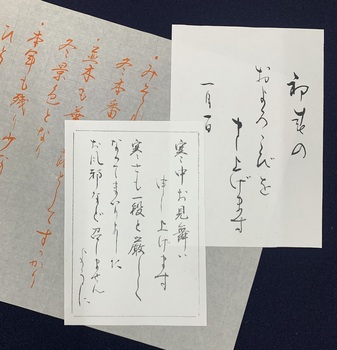 初春の
およろこびを
申し上げます
一月一日
寒中お見舞い
申し上げます
寒さも一段と厳しく
なってまいりました
お風邪など召しません
ように
・みぞれ
冬本番
・並木も葉
冬景色となり
・本年も残り少な